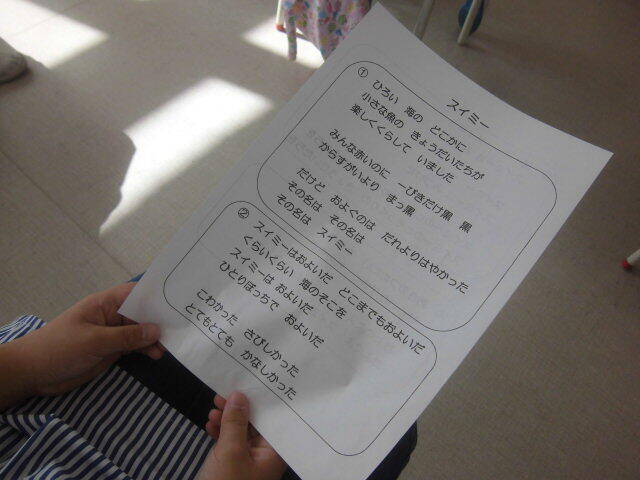 スイミー
①
ひろい 海の どこかに
小さな魚の きょうだいたちが
楽しくくらして いました
みんな赤いのに 一ぴきだけ黒 黒
からすがいより まっ黒
だけど およぐのは だれよりはやかった
その名は その名は
その名は スイミー
②
スイミーはおよいだ どこまでもおよいだ
くらいくらい 海のそこを
スイミーは およいだ
ひとりぼっちで およいだ
こわかった さびしかった
とてもとても かなしかった